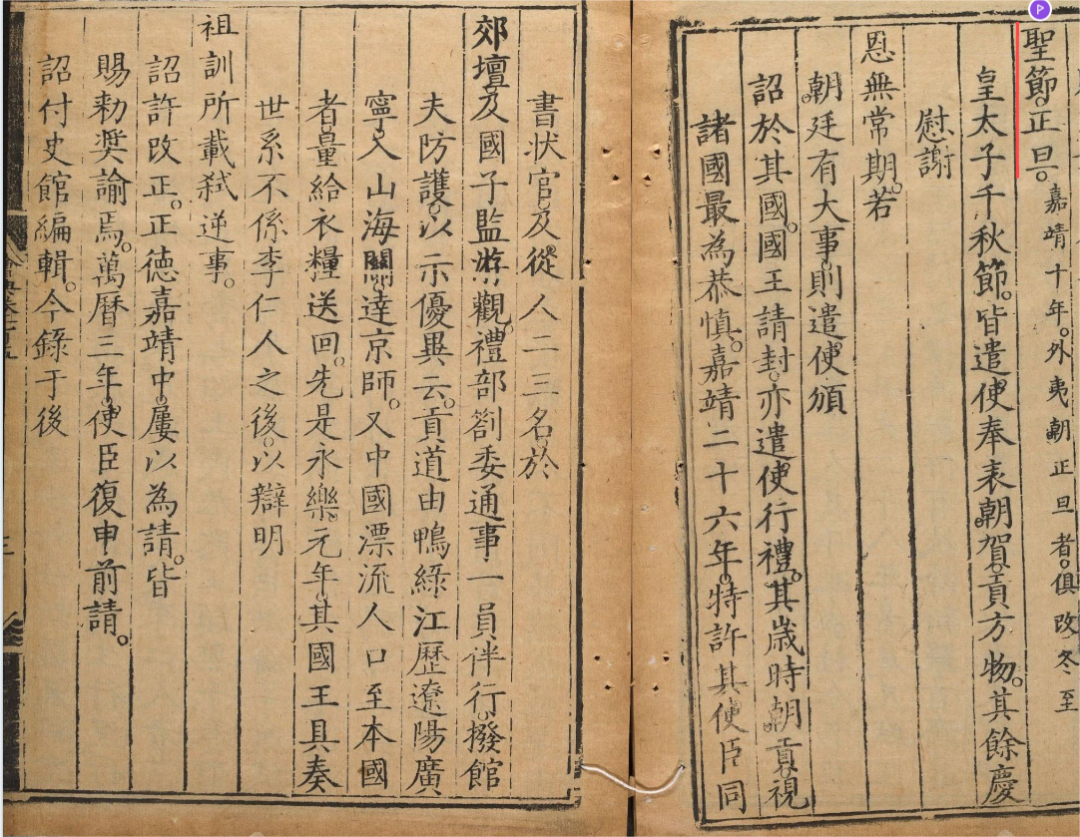 聖節。正旦。嘉靖十年。外夷朝正旦者。俱改冬至
皇太子千秋節。皆遣使奉表朝賀。貢方物。其餘慶
慰謝
恩無常期。若
朝廷有大事。則遣使頒
詔於其國。國王請封。亦遣使行禮。其歲時朝貢。視
諸國最為恭慎。嘉靖二十六年。特許其使臣同
書狀官。及從人二三名。於
郊壇。及國子監游觀。禮部劄委通事一員伴行。撥館
夫防護。以示優異云。貢道由鴨綠江歷遼陽廣
寧。入山海關。達京師。又中國漂流人口至本國
者。量給衣糧送回。先是永樂元年。其國王具奏
世系不係李仁人之後。以辯明
祖訓所載弒逆事。
詔許改正。正德嘉靖中。屢以為請。皆
賜勑奬諭焉。萬曆三年。使臣復申前請。
詔付史館編輯。今錄于後
三